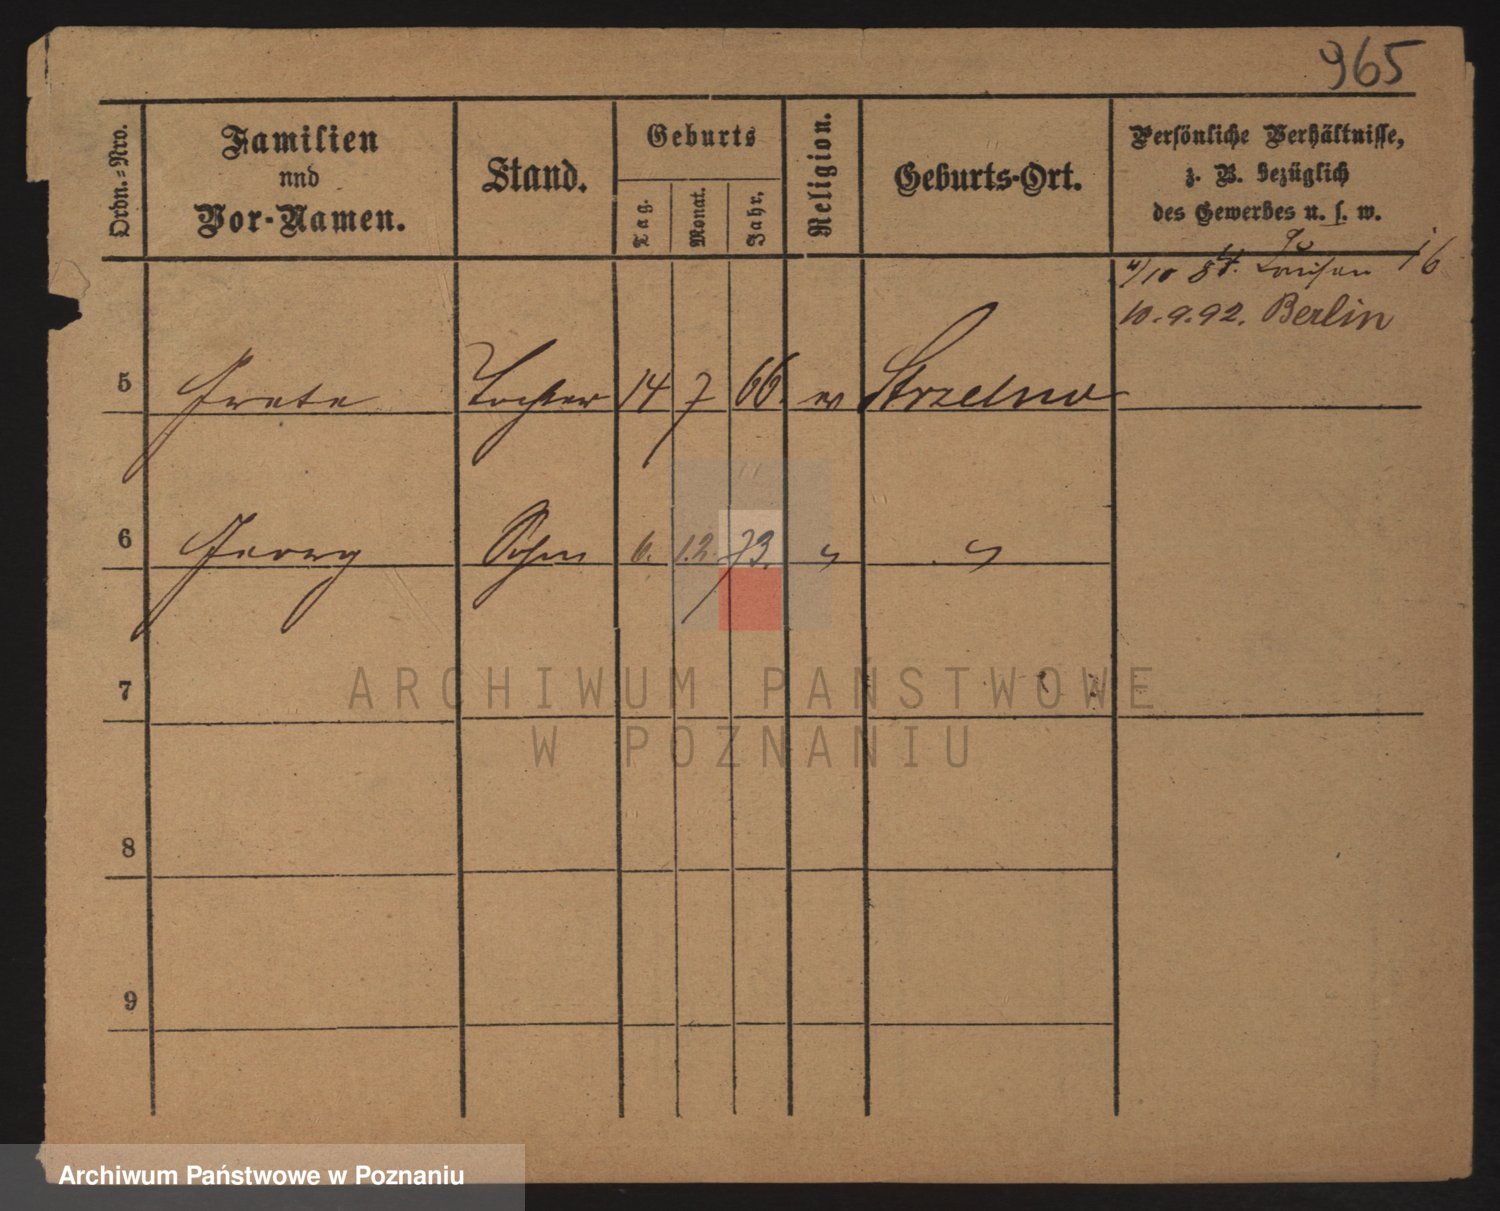 965
Ordn.-Nro.
Familien
und
Vor-Namen.
Stand.
Geburts
Tag.
Monat.
Jahr.
Religion.
Geburts-Ort.
Persönliche Verhältnisse,
z. B. bezüglich
des Gewerbes u. s. w.
4/10 87. Louisen 16
10.9.92. Berlin
5 Grete Tochter 14 7 66. ev Strzelno
6 Georg Sohn 6. 12. 73. " "
7
8
9
ARCHIWUM PAŃSTWOWE
W POZNANIU
Archiwum Państwowe w Poznaniu